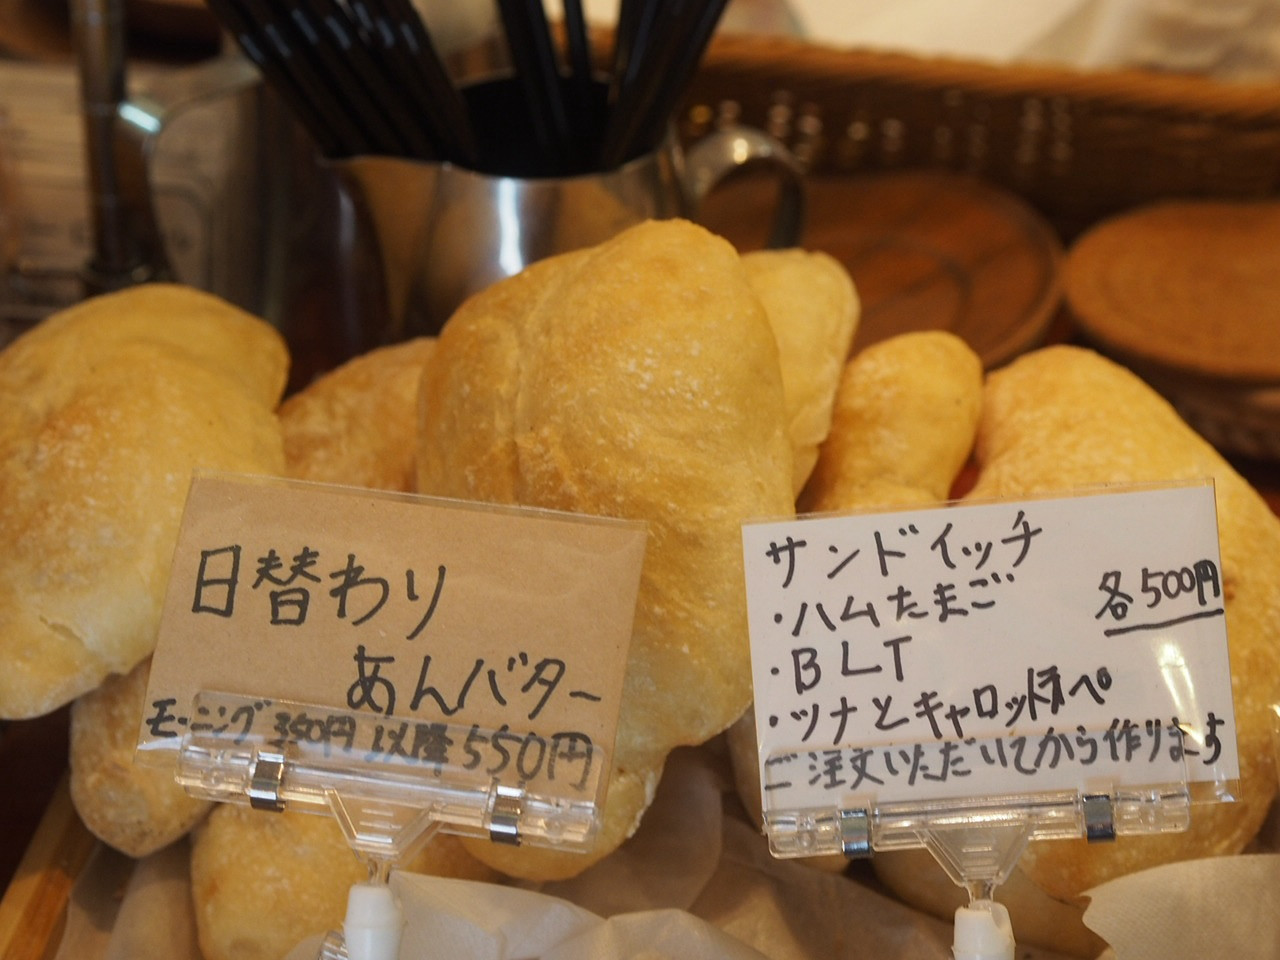 日替わり
あんバター
モーニング 350円 以降 550円
サンドイッチ
・ハムたまご
各500円
・BLT
・ツナとキャロットラペ
ご注文いただいてから作ります